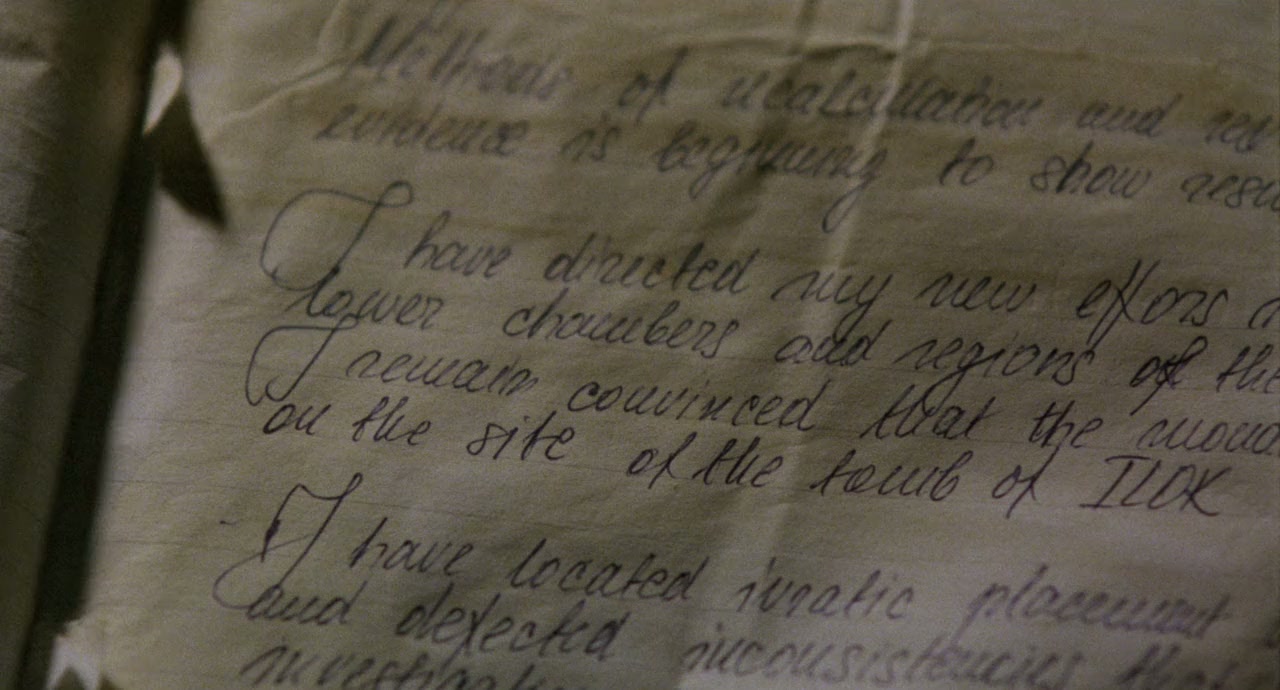 Methods of recalculation and
evidence is beginning to show
I have directed my new effors
lower chambers and regions of the
I remain convinced that the
on the site of the tomb of ILOK
I have located ivratic placement
and defected inconsistencies that